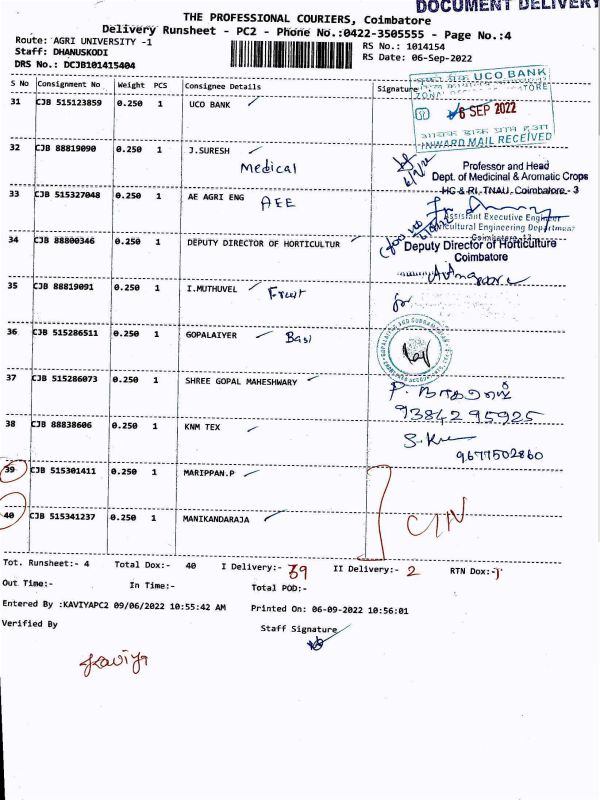 DOCUMENT DELIVERY
THE PROFESSIONAL COURIERS, Coimbatore
Delivery Runsheet - PC2 - Phone No.:0422-3505555 - Page No.:4
Route: AGRI UNIVERSITY -1
RS No.: 1014154
Staff: DHANUSKODI
RS Date: 06-Sep-2022
DRS No.: DCJB101415404
S No Consignment No Weight PCS Consignee Details Signature
31 CJB 515123859 0.250 1 UCO BANK
UCO BANK
6 SEP 2022
INWARD MAIL RECEIVED
32 CJB 88819090 0.250 1 J.SURESH
Medical
Professor and Head
Dept. of Medicinal & Aromatic Crops
HC & RI, TNAU, Coimbatore - 3
33 CJB 515327048 0.250 1 AE AGRI ENG
AEE
Assistant Executive Engineer
Agricultural Engineering Department
34 CJB 88800346 0.250 1 DEPUTY DIRECTOR OF HORTICULTUR
Deputy Director of Horticulture
Coimbatore
35 CJB 88819091 0.250 1 I.MUTHUVEL
Fruit
for
36 CJB 515286511 0.250 1 GOPALAIYER
37 CJB 515286073 0.250 1 SHREE GOPAL MAHESHWARY
9384295925
38 CJB 88838606 0.250 1 KNM TEX
9677502860
39 CJB 515301411 0.250 1 MARIPPAN.P
40 CJB 515341237 0.250 1 MANIKANDARAJA
Tot. Runsheet:- 4 Total Dox:- 40 I Delivery:- 39 II Delivery:- 2 RTN Dox:-
Out Time:- In Time:- Total POD:-
Entered By :KAVIYAPC2 09/06/2022 10:55:42 AM Printed On: 06-09-2022 10:56:01
Verified By Staff Signature
Kaviya